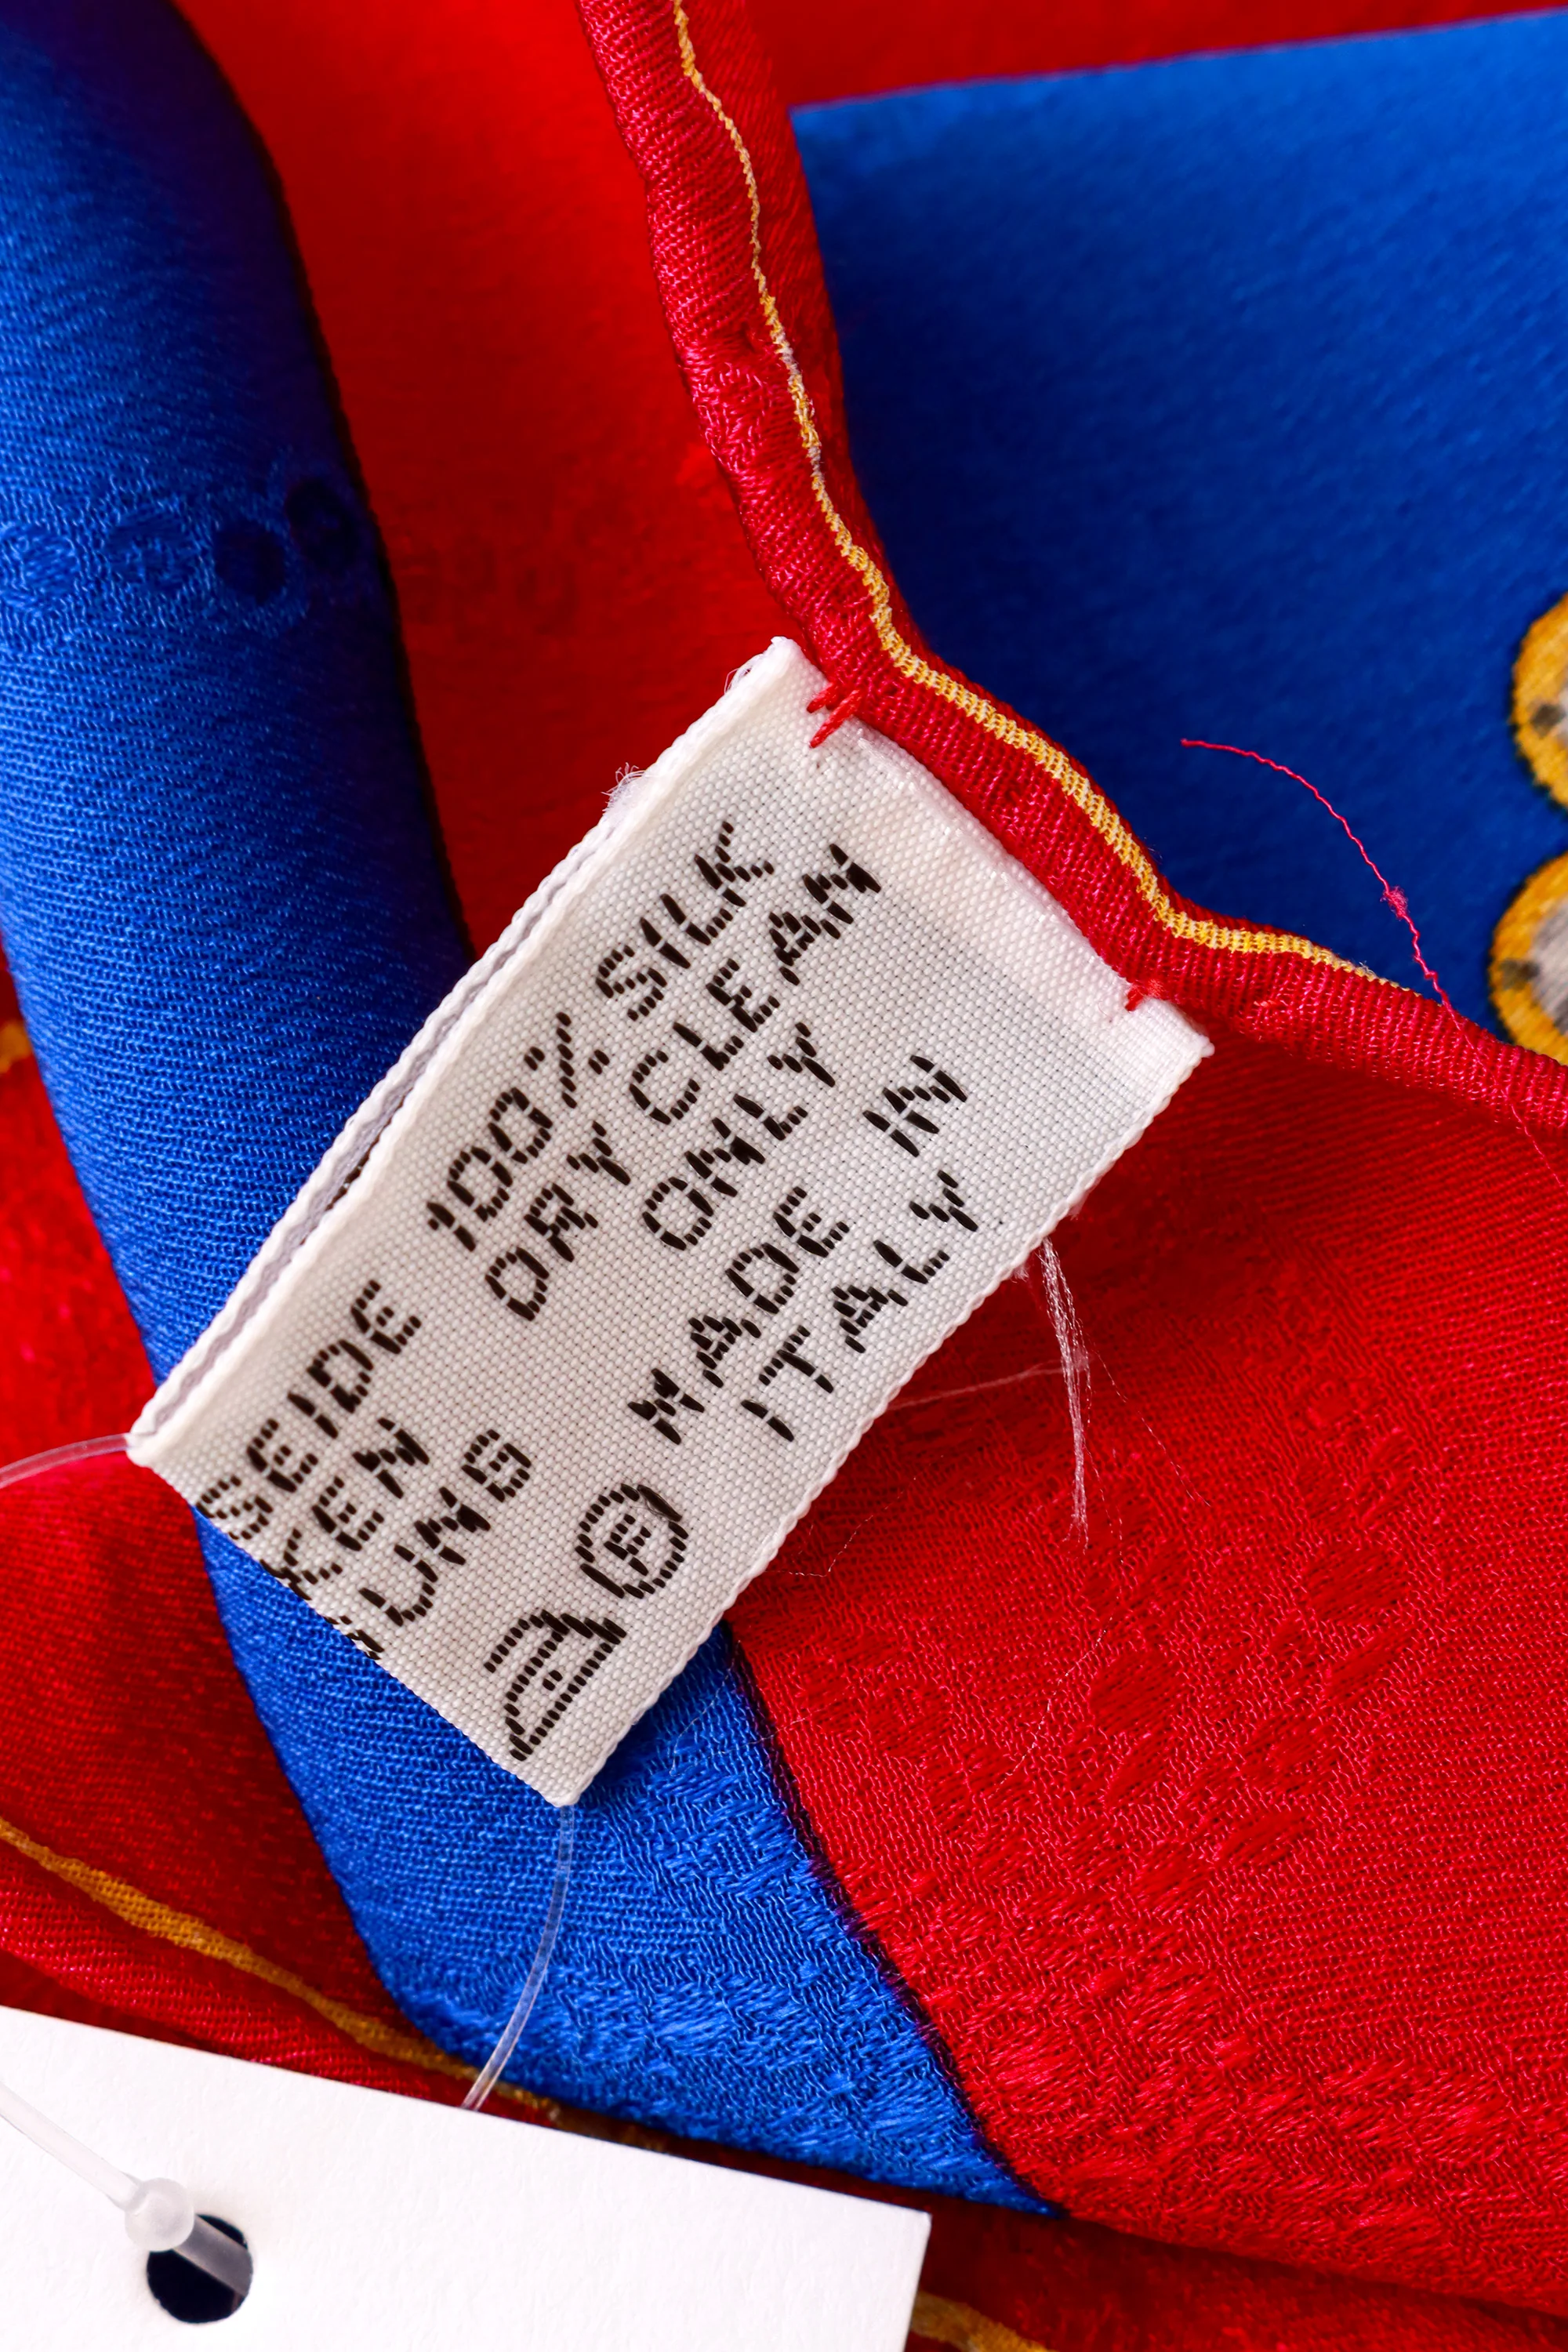 SEIDE 100% SILK
KEN DRY CLEAN
UNG ONLY
MADE IN
ITALY